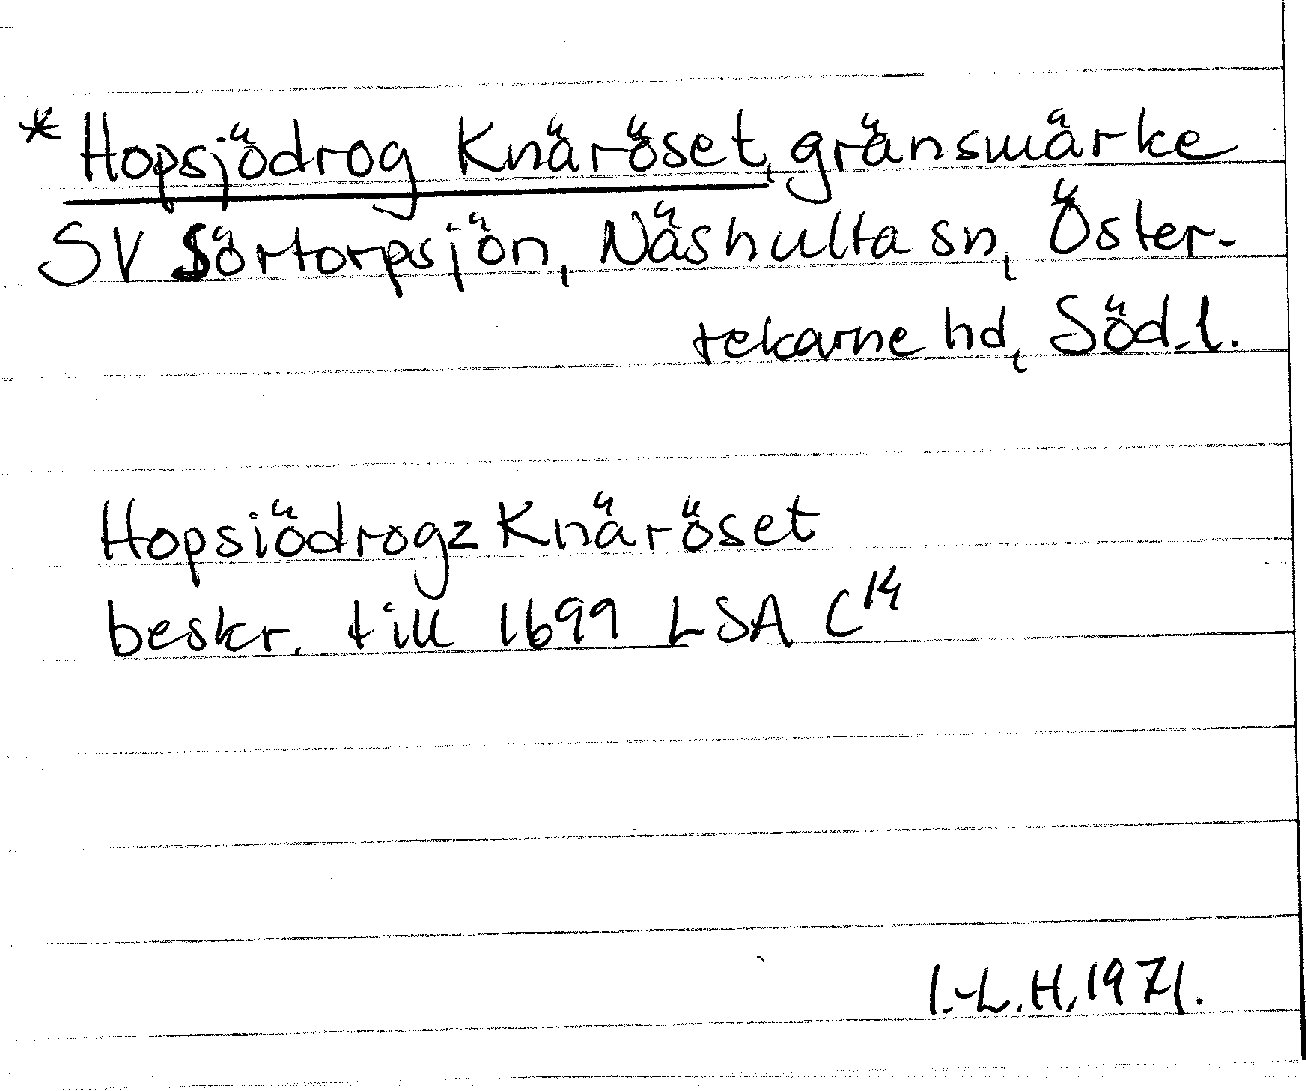 * Hopsjödrog Knäröset, gränsmärke
SV Sörtorpsjön, Näshulta sn, Öster-
rekarne hd, Söd.l.
Hopsiödrogz Knäröset
beskr. till 1699 LSA C14
I.-L.H. 1971.